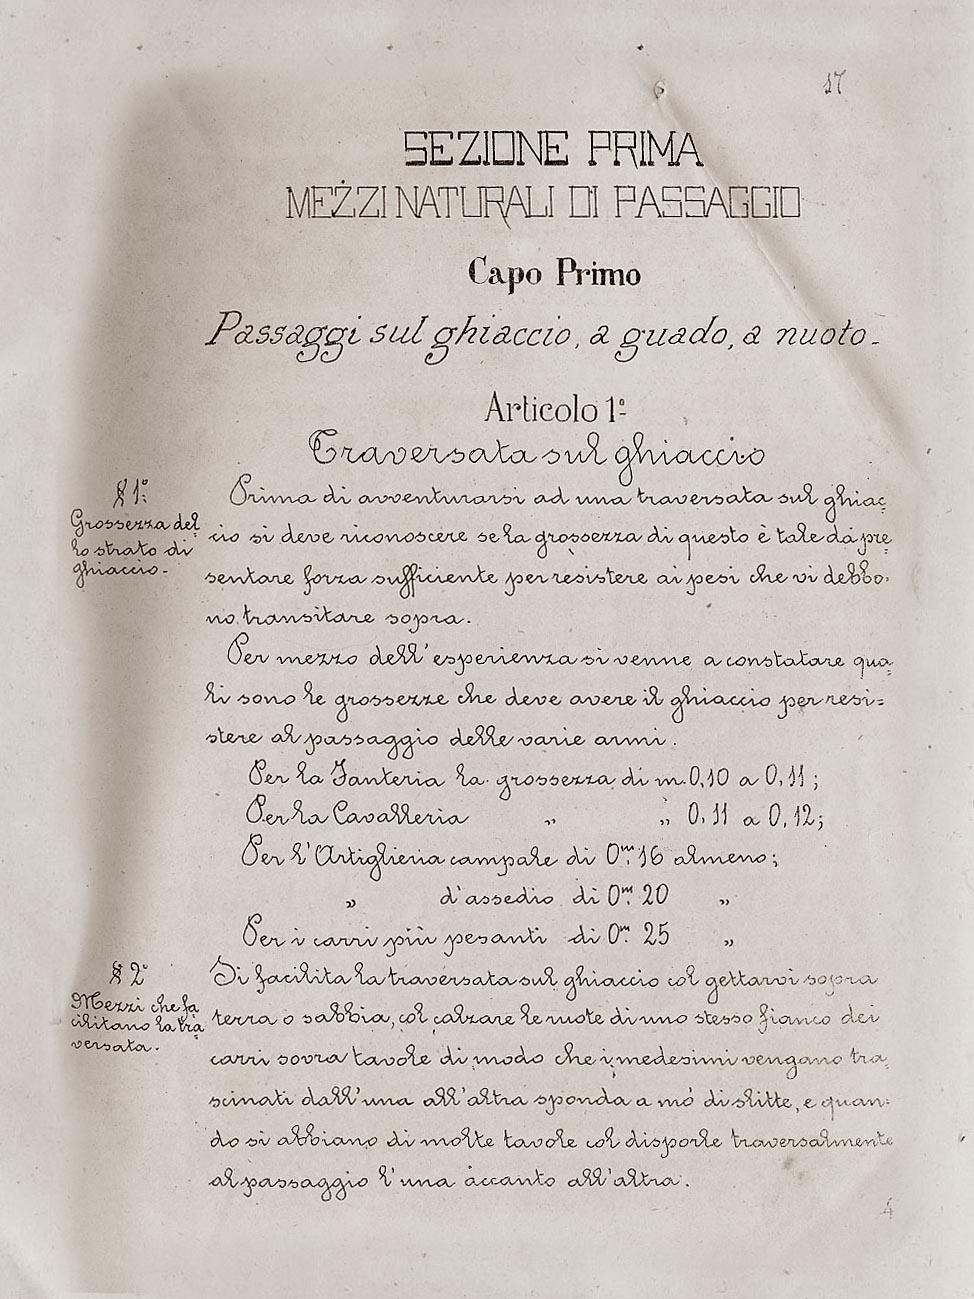 6
17
SEZIONE PRIMA
MEZZI NATURALI DI PASSAGGIO
Capo Primo
Passaggi sul ghiaccio, a guado, a nuoto.
Articolo 1º
Traversata sul ghiaccio
§ 1º
Grossezza del
lo strato di
ghiaccio.
Prima di avventurarsi ad una traversata sul ghiac=
cio si deve riconoscere se la grossezza di questo è tale da pre=
sentare forza sufficiente per resistere ai pesi che vi debbo=
no transitare sopra.
Per mezzo dell'esperienza si venne a constatare qua=
li sono le grossezze che deve avere il ghiaccio per resi=
stere al passaggio delle varie armi.
Per la Fanteria la grossezza di m. 0,10 a 0,11;
Per la Cavalleria „ „ 0,11 a 0,12;
Per l'Artiglieria campale di 0m.16 almeno;
„ d'assedio di 0m.20 „
Per i carri più pesanti di 0m.25 „
§ 2º
Mezzi che fa
cilitano la tra
versata.
Si facilita la traversata sul ghiaccio col gettarvi sopra
terra o sabbia, col calzare le ruote di uno stesso fianco dei
carri sovra tavole di modo che i medesimi vengano tra=
scinati dall'una all'altra sponda a mò di slitte, e quan=
do si abbiano di molte tavole col disporle traversalmente
al passaggio l'una accanto all'altra.
4